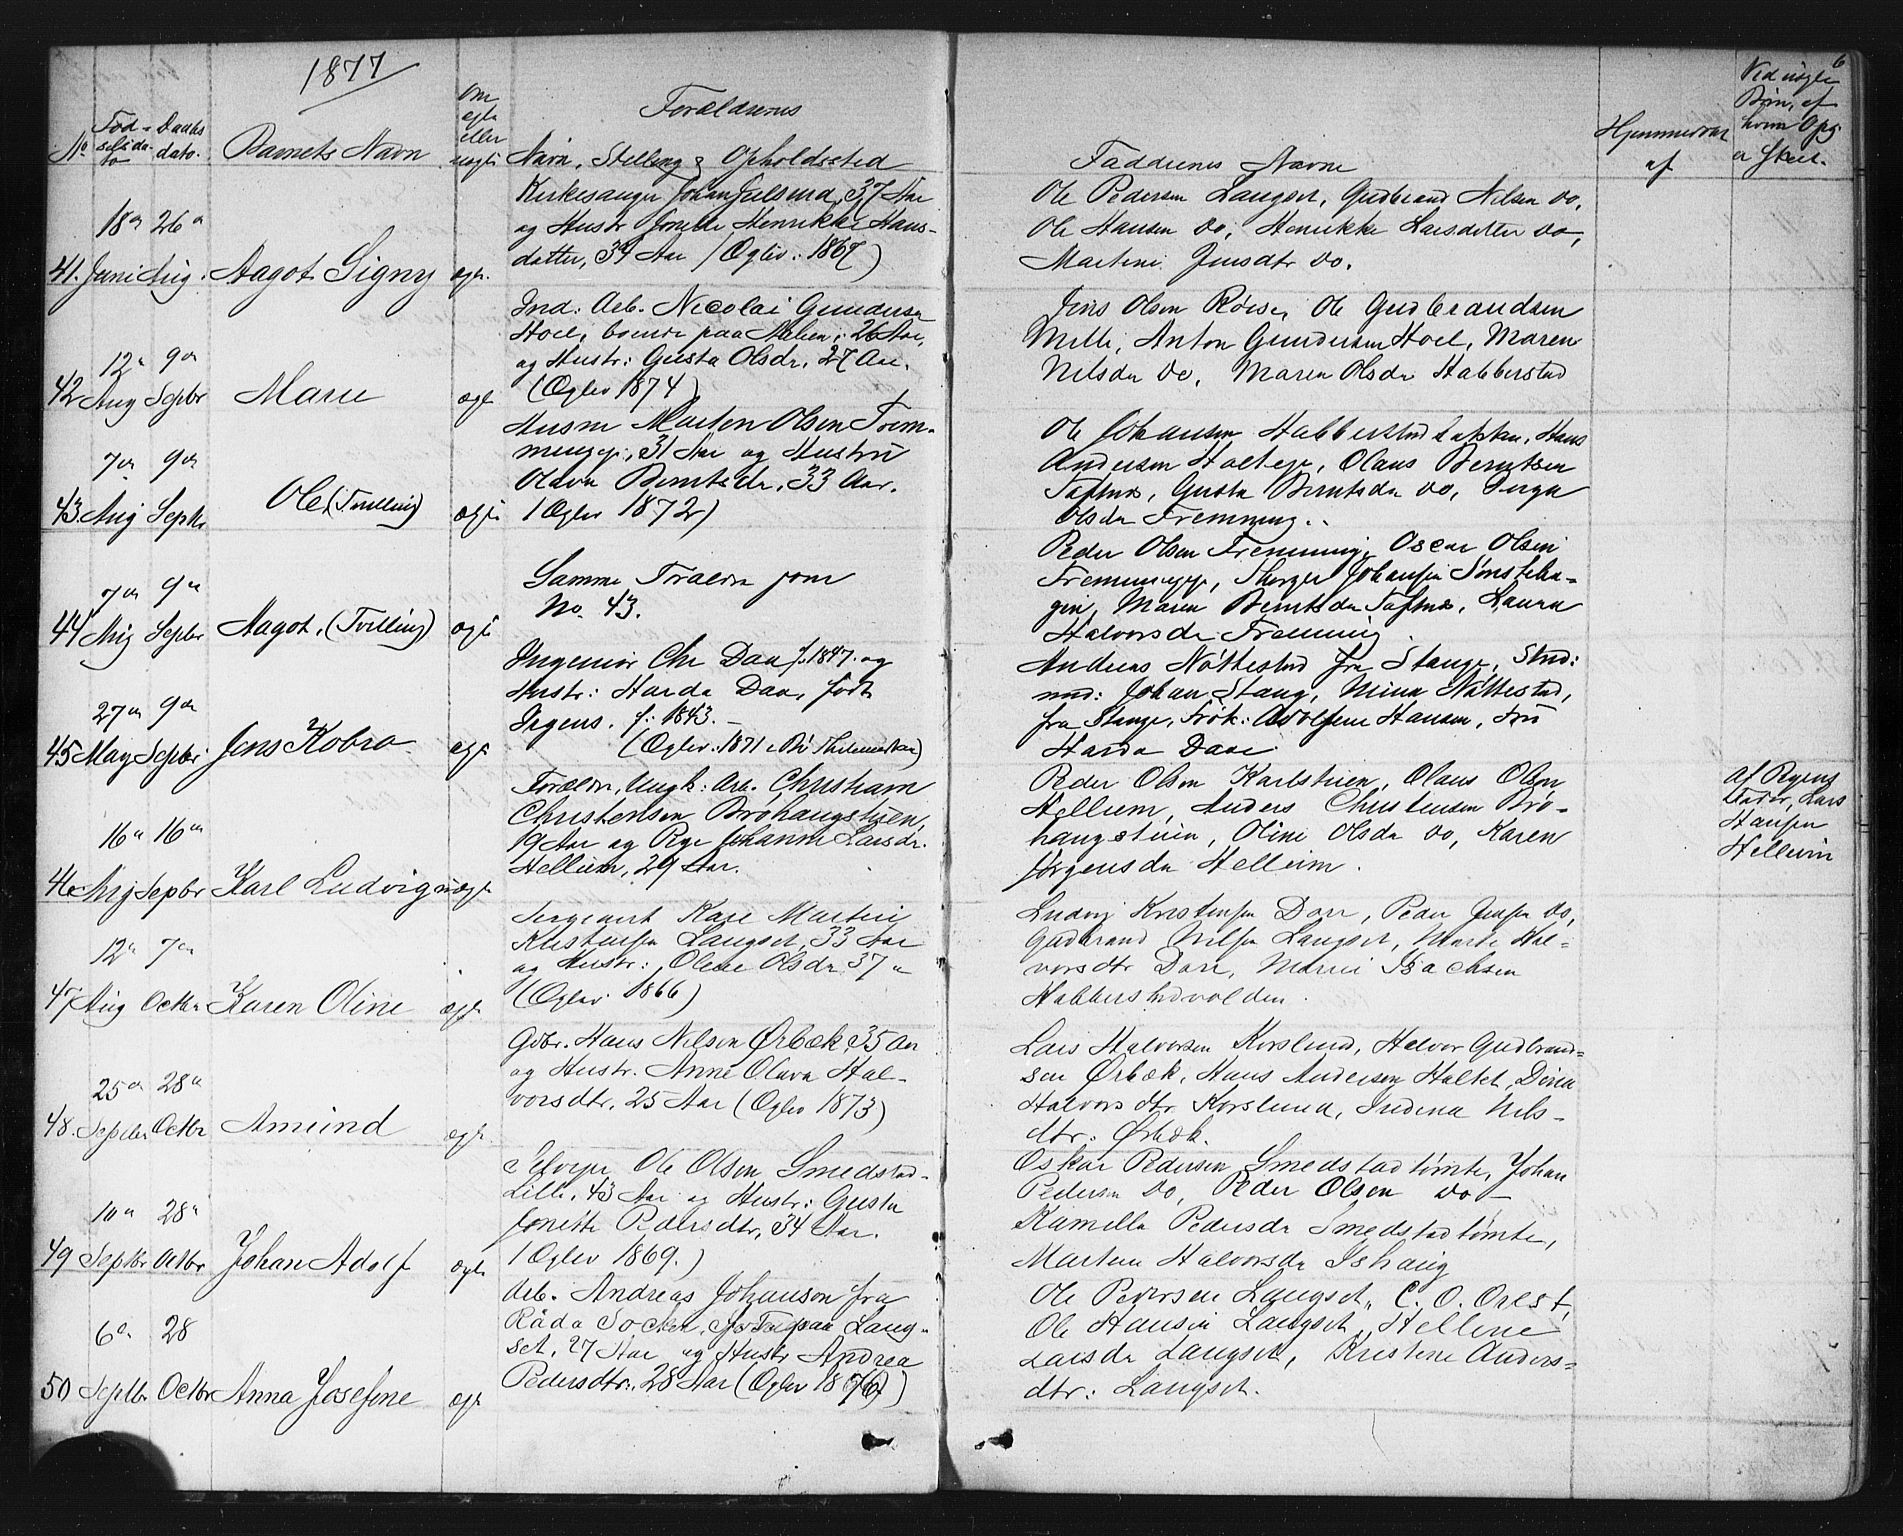 1877
6
No
Fød-
selsda-
to
Daabs
dato.
Barnets Navn
Om
egte
eller
uegte
Forældrenes
Navn, Stilling & Opholdssted
Faddernes Navne
Hjemmedøbt
af
Ved uegte
Børn, af
hvem Opg.
er skeet.
41. 18de Juni 26de Aug. Aagot Signy ægte
Kirkesanger Johan Julsrud, 37 Aar
og Hustr Henrikke Hans-
datter, 34 Aar (Oglev: 1867)
Ole Pedersen Langset, Gudbrand Nilsen do,
Ole Hansen do, Henrikke Larsdatter do,
Martine Jensdtr do.
42 12te Aug 9de Septbr Marie ægte
Ind: Arb. Nicolai Gundersen
Hoel, boende paa 26 Aar,
og Hustr: Gusta Olsdr. 27 Aar.
(Oglev 1874)
Jens Olsen Røise, Ole Gudbrandsen
Melli, Anton Gundersen Hoel, Maren
Nilsdr do, Maren Olsdr Habberstad
43 7de Aug 9de Septbr Ole (Tvilling) ægte
Husm Morten Olsen Frem-
mingeje, 31 Aar og Hustru
Olava Berntsdr. 33 Aar.
(Oglev 1872)
Ole Johansen Habberstad Hans
Andersen Holteje, Olaus Berntsen
Tafsnes, Gusta Berntsdr do,
Olsdr Fremming.
44 7de Aug 9de Septbr Aagot, (Tvilling) ægte
Samme Forældre som
No. 43.
Peder Olsen Fremming, Oscar Olsen
Fremmingeje, Johansen
Maren Berntsdr Tafsnes, Laura
Halvorsdr Fremming
45 27de May 9de Septbr Jens Kobro ægte
Ingeniør Chr Daae f. 1847. og
Hustr: Harda Daae, født
Irgens. f: 1843. -
(Oglev: 1871 i Bø Thelemarken)
Andreas Nøttestad fra Stange, Stud:
med: Johan Stang, Mina Nøttestad,
fra Stange, Frøk: Adolfine Hansen, Frü
Harda Daae
46 16de Aug 16de Septbr Karl Ludvig uægte
Forældre, Ungk: Arb. Christian
Christensen Brøhaugstuen,
19 Aar og Pige Johanne Larsdr.
Hellum, 29 Aar.
Peder Olsen Karlstuen, Olaus Olsen
Hellum, Anders Christensen Brø-
haugstuen, Oline Olsdr do, Karen
Jørgensdr Hellum.
af Pigens
Fader, Lars
Hansen
Hellum
47 12te Aug 7de Octbr Karen Oline ægte
Sergeant Kare Martin
Kristensen Langset, 33 Aar
og Hustr: Olene Olsdr 37 "
(Oglev 1866)
Ludvig Kristensen Dorr, Peder Jensen do,
Gudbrand Nilsen Langset, Marte Hal-
vorsdtr Dorr, Marie Isachsen
Habberstadvolden.
48. 25de Septbr 28de Octbr Amund ægte
Gdbr. Hans Nilsen Ørbæk, 35 Aar
og Hustr. Anne Olava Hal-
vorsdtr. 25 Aar (Oglev 1873)
Lars Halvorsen Korslund, Halvor Gudbrand-
sen Ørbæk, Hans Andersen Holtet, Dina
Halvorsdtr Korslund, Nils-
dtr: Ørbæk.
49 10de Septbr 28de Octbr Johan Adolf ægte
Selveje Ole Olsen Smedstad-
Lille, 43 Aar og Hustr: Gusta
Jonette Pedersdtr, 34 Aar.
(Oglev 1869.)
Oskar Pedersen Smedstadtømte, Johan
Pedersen do, Peder Olsen do -
Kamella Pedersdr Smedstadtømte,
Martin Halvorsdr Ishaug
50 6te Septbr 28 Octbr Anna Josefine ægte
Arb. Andreas Johanson fra
Råda Socken, paa Lang-
set, 27 Aar og Hustr Andrea
Pedersdtr., 28 Aar (Oglev 1876)
Ole Pedersen Langset, C. O. Onest,
Ole Hansen Langset, Hellene
Larsdr Langset, Kristine Anders-
dtr: Langset.